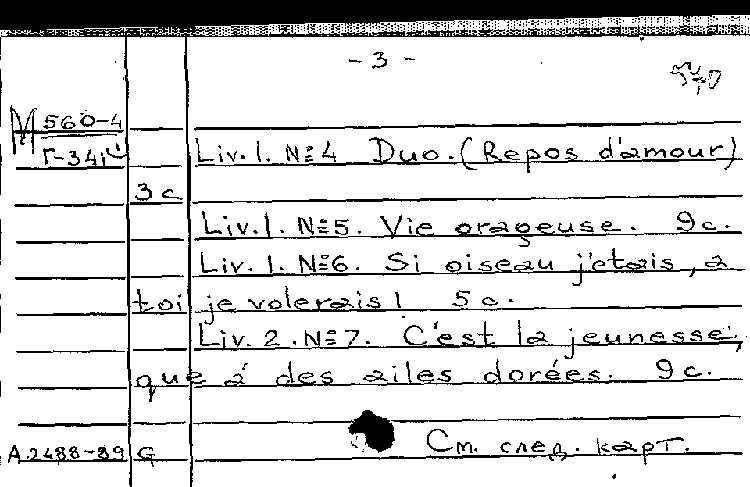 - 3 -
540
М 560-4
Г-341
Liv. 1. №4 Duo. (Repos d'amour)
3 c
Liv. 1. №5. Vie orageuse. 9c.
Liv. 1. №6. Si oiseau j'etais, a
toi je volerais! 5 c.
Liv. 2. №7. C'est la jeunesse,
que a des ailes dorées. 9c.
См. след. карт.
A.2488-89 G